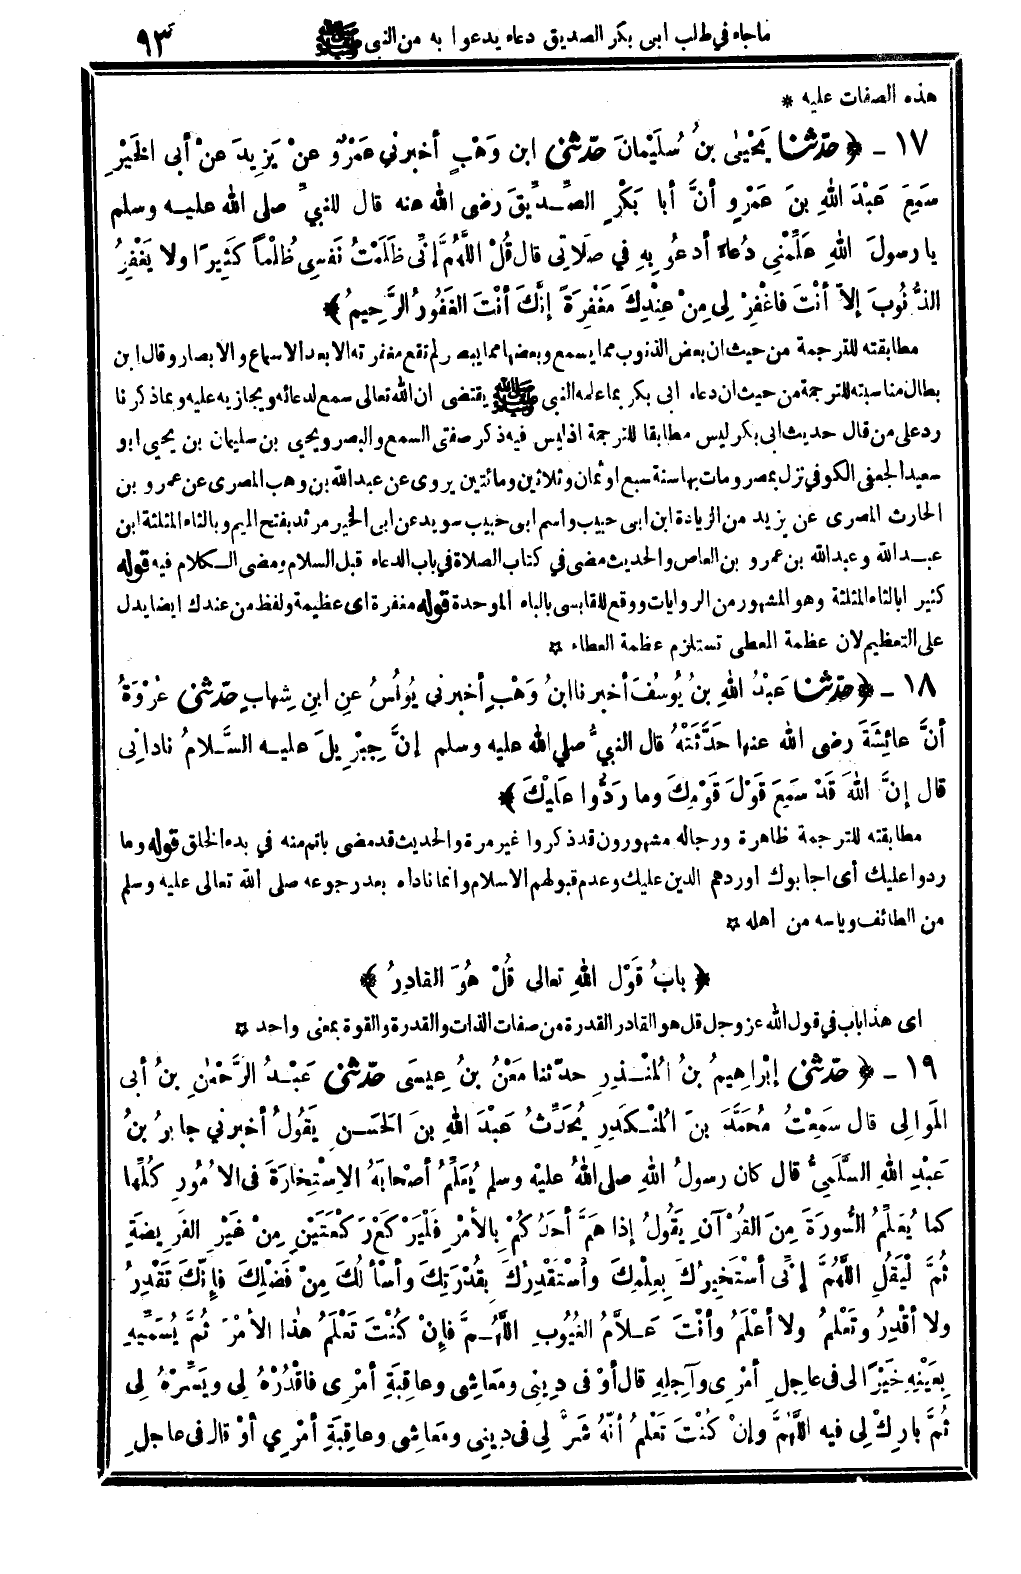 ماجاء في طلب ابى بكر الصديق دعاء يدعوا به من النبى ﷺ ٩٣
هذه الصفات عليه *
١٧ - ﴿ حَدَّثَنَا يَحْيَىٰ بنُ سُلَيْمانَ حَدّثنى ابن وَهْبٍ أخبرني عَمْرٌو عنْ يَزِيدَ عنْ أبى الخَيْرِ
سَمِعَ عَبْدَ اللهِ بنَ عَمْرٍو أنَّ أبا بَكْرٍ الصِّدِّيقَ رضى الله عنه قال للنبيِّ صلى الله عليه وسلم
يارسولَ اللهِ عَلِّمْنِى دُعاءً أدعُو بِهِ في صَلاتِى قال قُلْ اللَّهُمَّ إنِّى ظَلَمْتُ نَفْسِى ظُلْماً كَثِيرًا ولا يَغْفِرُ
الذُّنُوبَ إلاّ أنْتَ فاغْفِرْ لِى مِنْ عِنْدِكَ مَغْفِرَةً إنَّكَ أنْتَ الغَفُورُ الرَّحِيمُ ﴾
مطابقته للترجمة من حيث ان بعض الذنوب مما يسمع وبعضها مما يبصر لم تقع مغفرته الا بعد الاسماع والابصار وقال ابن
بطال مناسبته للترجمة من حيث ان دعاء ابى بكر بما علمه النبى ﷺ يقتضى ان الله تعالى سمع لدعائه ويجازيه عليه وبما ذكرنا
رد على من قال حديث ابى بكر ليس مطابقا للترجمة اذ ليس فيه ذكر صفتى السمع والبصر ويحيى بن سليمان بن يحيى ابو
سعيد الجعفى الكوفي نزل بمصر ومات بها سنة سبع او ثمان وثلاثين ومائتين يروى عن عبد الله بن وهب المصرى عن عمرو بن
الحارث المصرى عن يزيد من الزيادة ابن ابى حبيب واسم ابى حبيب سويد عن ابى الخير مرثد بفتح الميم وبالثاء المثلثة ابن
عبد الله وعبد الله بن عمرو بن العاص والحديث مضى في كتاب الصلاة في باب الدعاء قبل السلام ومضى الكلام فيه قوله
كثيرا بالثاء المثلثة وهو المشهور من الروايات ووقع للقابسى بالباء الموحدة قوله مغفرة اى عظيمة ولفظ من عندك ايضا يدل
على التعظيم لان عظمة المعطى تستلزم عظمة العطاء ✩
١٨ - ﴿ حَدَّثَنَا عَبْدُ اللهِ بنُ يُوسُفَ أخبرنا ابنُ وَهْبٍ أخبرنى يُونُسُ عنِ ابنِ شِهابٍ حَدّثنى عُرْوَةُ
أنَّ عائِشَةَ رضى الله عنها حَدَّثَتْهُ قال النبيُّ صلى الله عليه وسلم إنَّ جِبْرِيلَ عليه السَّلامُ نادانِى
قال إنَّ اللهَ قَدْ سَمِعَ قَوْلَ قَوْمِكَ وما رَدُّوا عَلَيْكَ ﴾
مطابقته للترجمة ظاهرة ورجاله مشهورون قد ذكروا غير مرة والحديث قد مضى باتم منه في بدء الخلق قوله وما
ردوا عليك أى اجابوك او ردهم الدين عليك وعدم قبولهم الاسلام وانما ناداه بعد رجوعه صلى الله تعالى عليه وسلم
من الطائف وياسه من اهله ✩
﴿ بابُ قَوْلِ اللهِ تعالى قُلْ هُوَ القادِرُ ﴾
اى هذا باب في قول الله عز وجل قل هو القادر القدرة من صفات الذات والقدرة والقوة بمعنى واحد ✩
١٩ - ﴿ حَدّثنى إبْراهِيمُ بنُ المُنْذِرِ حدّثنا مَعْنُ بنُ عِيسَى حَدّثنى عَبْدُ الرَّحْمٰنِ بنُ أبى
المَوالِى قال سَمِعْتُ مُحَمَّدَ بنَ المُنْكَدِرِ يُحَدِّثُ عَبْدَ اللهِ بنَ الحَسَنِ يَقُولُ أخبرني جابرُ بنُ
عَبْدِ اللهِ السَّلَمِيُّ قال كان رسولُ اللهِ صلى اللهُ عليْه وسلم يُعَلِّمُ أصْحابَهُ الإسْتِخارَةَ فى الأُمُورِ كُلِّها
كما يُعَلِّمُ السُّورَةَ مِنَ القُرْآنِ يَقُولُ إذا هَمَّ أحَدُكُمْ بالأمْرِ فَلْيَرْكَعْ رَكْعَتَيْنِ مِنْ غَيْرِ الفَرِيضَةِ
ثُمَّ لْيَقُلِ اللَّهُمَّ إنِّى أسْتَخِيرُكَ بِعِلْمِكَ وأسْتَقْدِرُكَ بِقُدْرَتِكَ وأسْألُكَ مِنْ فَضْلِكَ فإنّكَ تَقْدِرُ
ولا أقْدِرُ وتَعْلَمُ ولا أعْلَمُ وأنْتَ عَلاَّمُ الغُيُوبِ اللَّهُمَّ فإنْ كُنْتَ تَعْلَمُ هٰذا الأمْرَ ثُمَّ يُسَمِّيهِ
بِعَيْنِهِ خَيْرًا لى فى عاجِلِ أمْرِى وآجِلِهِ قال أوْ فى دِينِى ومَعاشِى وعاقِبَةِ أمْرِى فاقْدُرْهُ لِى ويَسِّرْهُ لِى
ثُمَّ بارِكْ لِى فيه اللَّهُمَّ وإنْ كُنْتَ تَعْلَمُ أنّهُ شَرٌّ لِى فى دِينِى ومَعاشِى وعاقِبَةِ أمْرِي أوْ قال فى عاجلِ